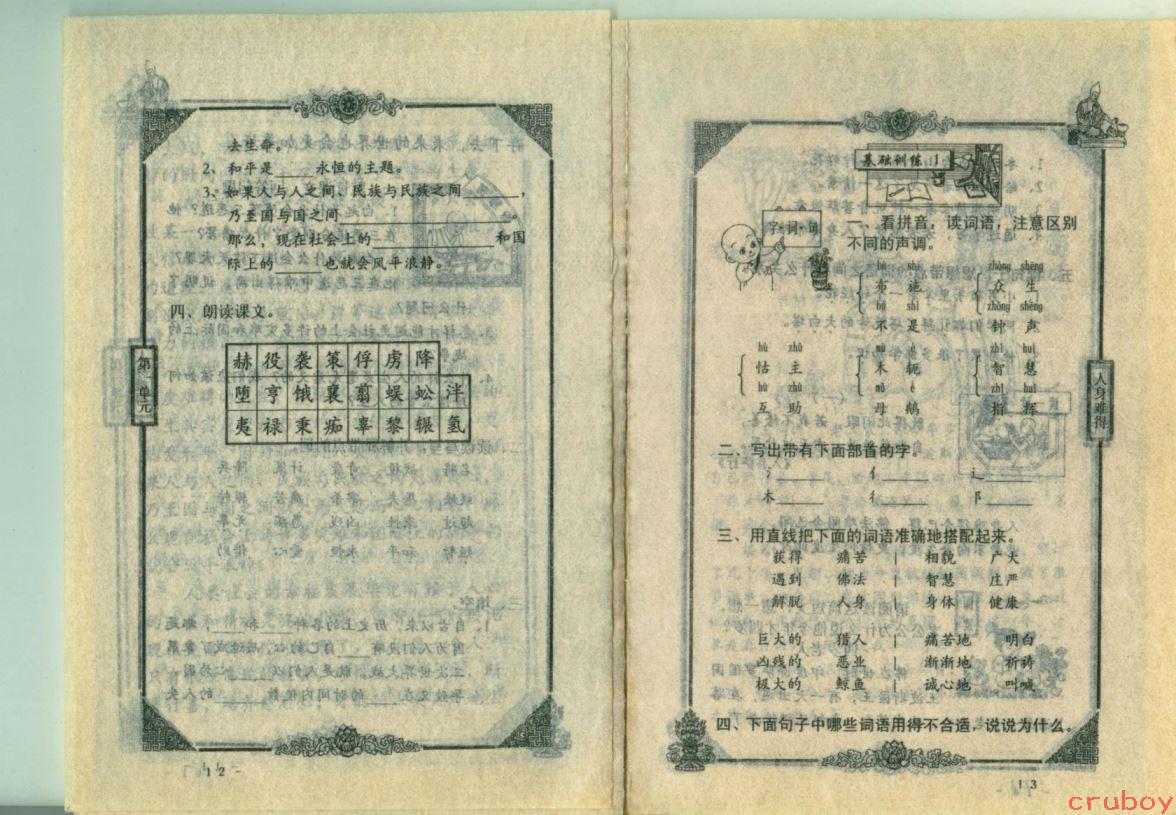 去生命。
2、和平是____永恒的主题。
3、如果人与人之间、民族与民族之间______,
乃至国与国之间__________________。
那么,现在社会上的______________和国
际上的_____也就会风平浪静。
四、朗读课文。
赫 役 袭 策 俘 虏 降
堕 亨 饿 襄 翦 蜈 蚣 泮
夷 禄 秉 痴 辜 黎 辗 氢
第一单元
12
基础训练1
字·词·句
一、看拼音,读词语,注意区别
不同的声调。
bù shī zhòng shēng
布 施 众 生
bú shì zhōng shēng
不 是 钟 声
hù zhǔ mù è zhì huì
怙 主 木 轭 智 慧
hù zhù mǔ é zhǐ huī
互 助 母 鹅 指 挥
二、写出带有下面部首的字。
氵______ 亻______ 辶______
木______ 彳______ 阝______
三、用直线把下面的词语准确地搭配起来。
获得 痛苦 相貌 广大
遇到 佛法 智慧 庄严
解脱 人身 身体 健康
巨大的 猎人 痛苦地 明白
凶残的 恶业 渐渐地 祈祷
极大的 鲸鱼 诚心地 叫喊
四、下面句子中哪些词语用得不合适,说说为什么。
人身难得
13
cruboy